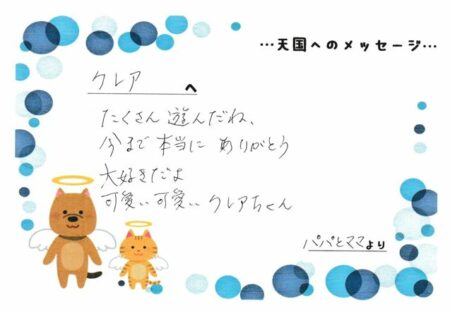 …天国へのメッセージ…
クレア へ
たくさん 遊んだね、
今まで 本当に ありがとう
大好きだよ
可愛い可愛い クレアちゃん
パパとママより